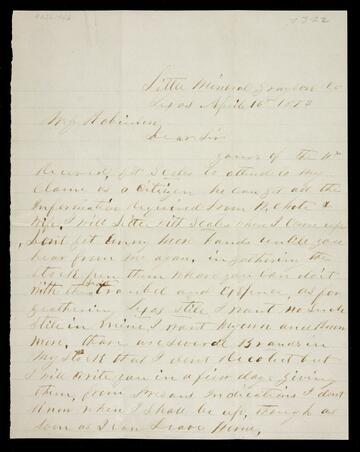 Little Mineral Grayson Co
Texas April 16th 1883
W J Robinson
Dear Sir
yours of the 4th
Received, get Scales to attend to my
Claim as a Citizen he can get all the
Information Required from B. Chote &
Wife, I will Settle with Scales when I Come up
dont get Enny More hands untill you
hear from me again, in gatherin the
Stock pen them where you Can do it
with trouble and Expence, as for
geathering Texas Stile I want no such
Stile in Mine I want Myown and Know
more, thare are several Brands in
My Stock that I dont Recolect but
I will write you in a few days giving
them, from Present Indications I dont
Know when I Shall be up, though as
Soon as I Can Leave Home,